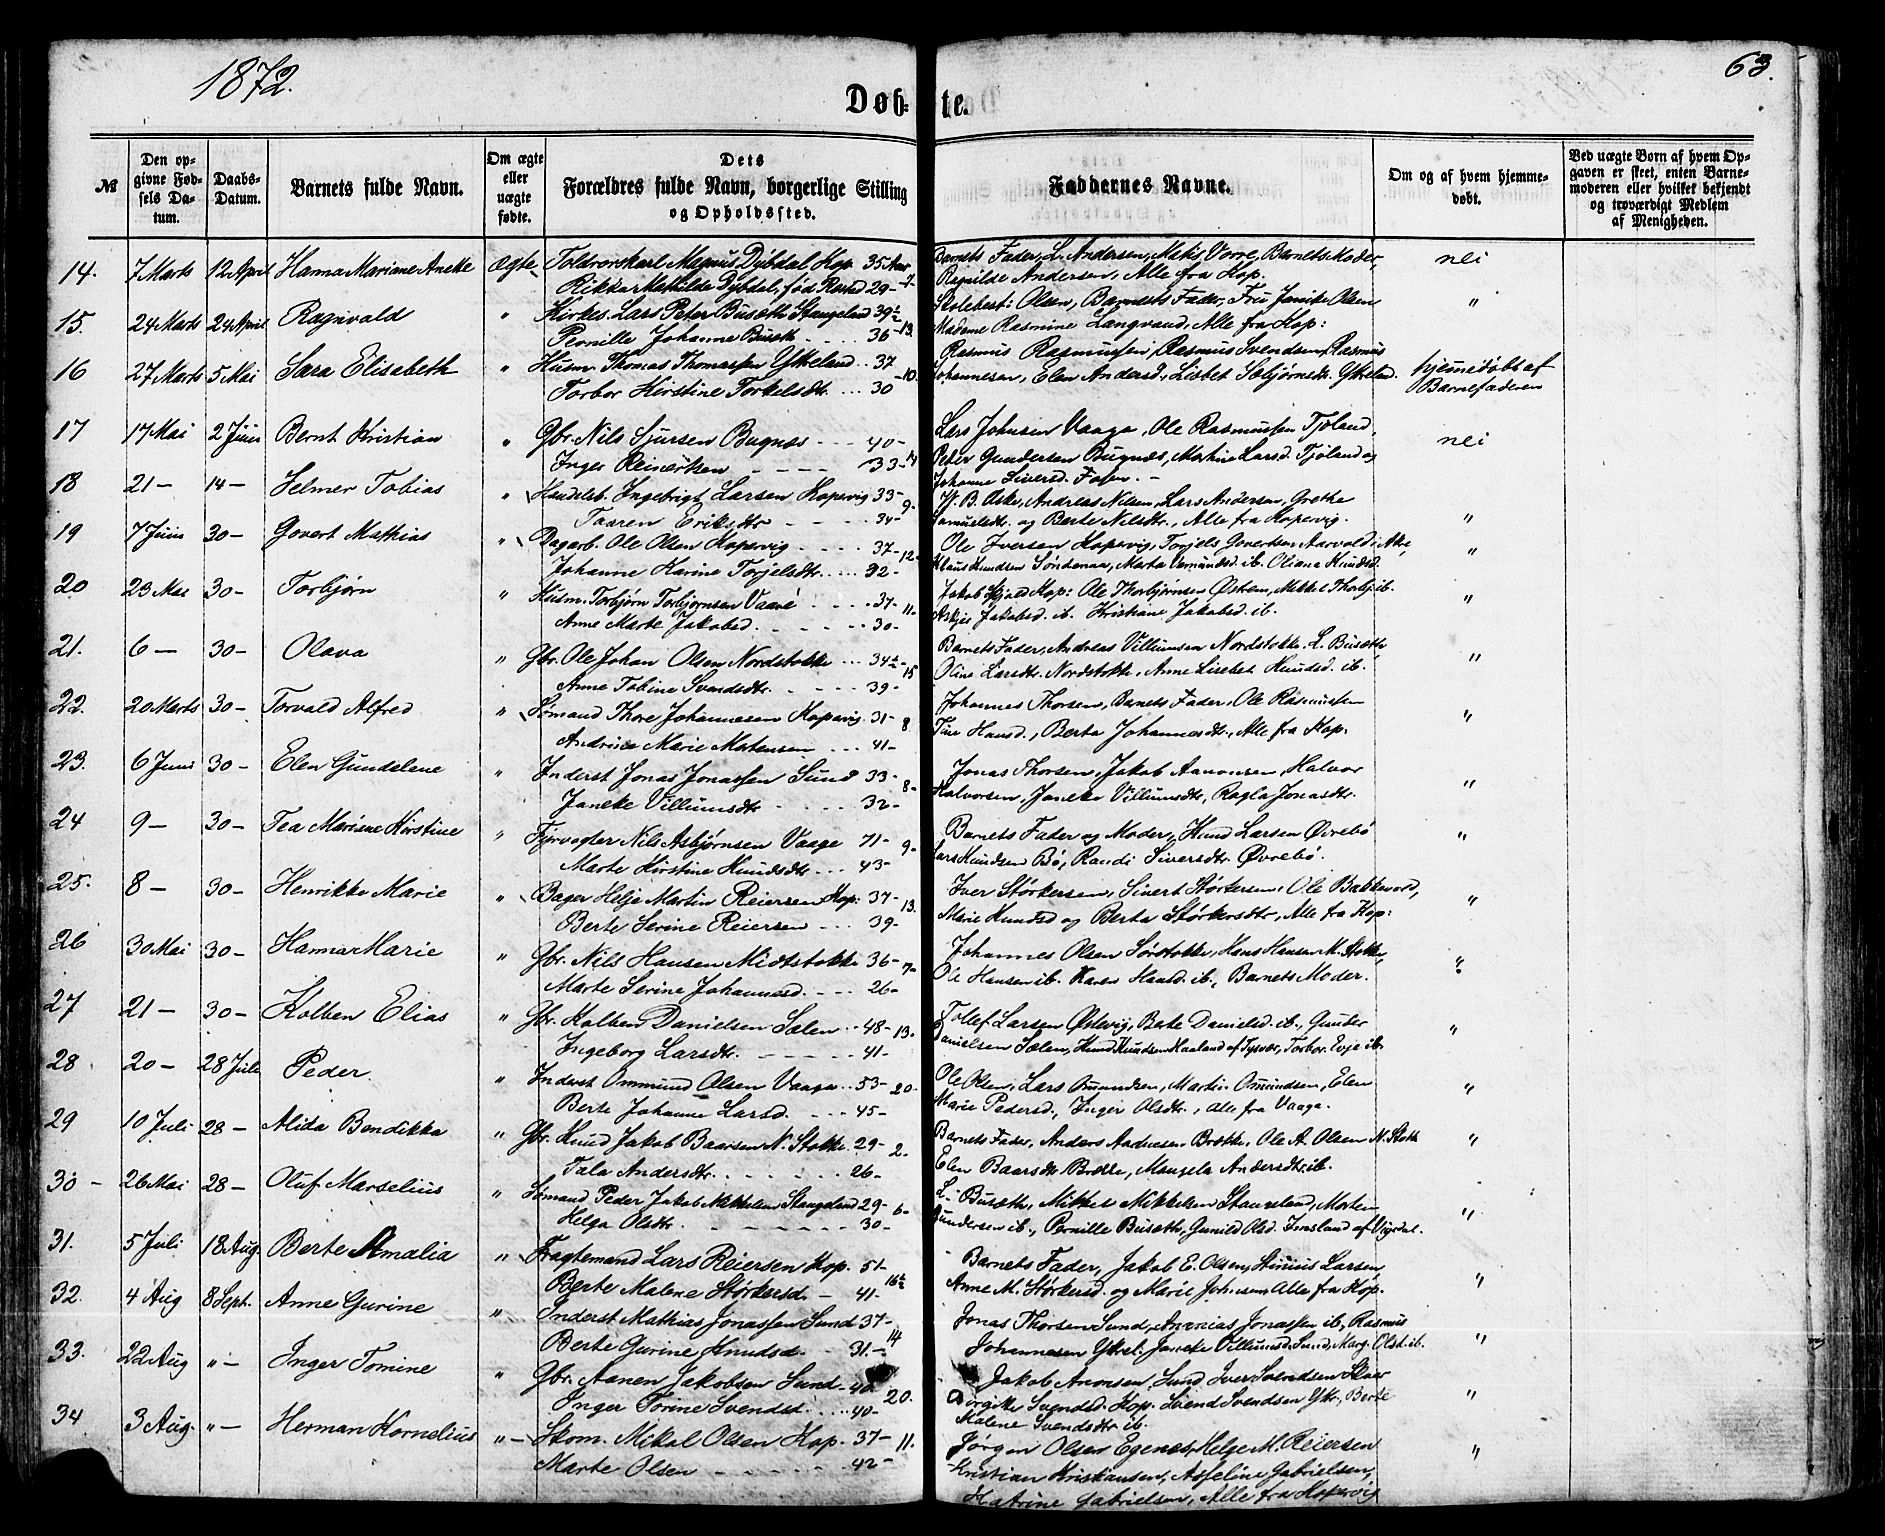 1872.
63.
Døbte.
№
Den opgivne Fødsels Datum.
Daabs-Datum.
Barnets fulde Navn.
Om ægte eller uægte fødte.
Dets Forældres fulde Navn, borgerlige Stilling og Opholdssted.
Faddernes Navne.
Om og af hvem hjemmedøbt.
Ved uægte Børn af hvem Opgaven er skeet, enten Barnemoderen eller hvilket bekjendt og troværdigt Medlem af Menigheden.
14. 7 Marts 12 April Hanna Mariane Aneke ægte Toldrorskarl Magnus Dybdal Kop. 35 Aar
Rikka Mathilde Dybdal, fød 29- 7-
Barnets Fader, L. Andersen, Barnets Moder,
Andersen, Alle fra Kop.
nei
15. 24 Marts 24 April Ragnvald " Kirkes. Lars Peter Busæth Stangeland 39½
Pernille Johanne Busæth 36- 13.
Skolebest: Olsen, Barnets Fader, Fru Olsen
Madame Rasmine Langvand, Alle fra Kop:
"
16 27 Marts 5 Mai Sara Elisabeth " Husm. Thomas Thomassen Ytreland 37
Torbor Kirstine Torkelsdtr. 30 10.
Rasmus Rasmussen, Rasmus Svendsen, Rasmus
Johannesen, Elen Andersd., Lisbet Sæbjørnsdtr. Ytreland.
hjemmedøbt af
Barnefaderen
17 17 Mai 2 Juni Bernt Kristian " Gbr. Nils Sjursen Bugnæs 40-
Inger Reinertsen 33- 14
Lars Johnsen Vaaga, Ole Rasmussen Tjøland,
Peter Gundersen Bugnæs, Martine Larsd. Tjøland og
Johanne Siversd. Fosen.
nei
18 21- 14- Selmer Tobias " Handelsb. Ingebrigt Larsen Kopervig 33-
Taaren Eriksdtr 34- 9.
Andreas Nilsen, Lars Andersen, Grethe
Samuelsdtr. og Berte Nilsdtr., Alle fra Kopervig.
"
19 7 Juni 30- Govert Mathias " Dagarb. Ole Olsen Kopervig 37-
Johanne Karine Torjelsdtr. 32- 12.
Ole Iversen Kopervig, Torjels Govertsen
Klaus Knudsen Søndenaa, Marta ib. Oliana Knudsd.
"
20 23 Mai 30- Torbjørn " Husm. Torbjørn Torbjørnsen Vaare 37-
Anne Marte Jakobsd. 30- 11.
Kop: Ole Thorbjørnsen Østrem, Mikkel Thorbj. ib.
Jakobsd. ib. Kristiane Jakobsd. ib.
"
21. 6- 30- Olava " Gbr. Ole Johan Olsen Nordstokke 34½-
Anne Tobine Svendsdtr. 39- 15
Barnets Fader, Andreas Villumsen Nordstokke. L. Busæth
Oline Larsdtr. Nordstokke, Anne Lisebet Knudsd. ib.
"
22. 20 Marts 30- Torvald Alfred " Sømand Thore Johannesen Kopervig 31-
Andrica Marie Mortensen 41- 8
Johannes Thorsen, Barnets Fader, Ole Rasmussen
Tine Knudsd., Berta Johannesdtr., Alle fra Kop.
"
23. 6 Juni 30- Elen Gundelene " Inderst Jonas Jonassen Sund 33-
Janeke Villumsdtr 32- 8-
Jonas Thorsen, Jakob Aanonsen, Halvor
Halvorsen, Janeke Villumsdtr, Ragla Jonasdtr.
"
24 9- 30- Tea Mariane Kirstine " Fyrvogter Nils Asbjørnsen Vaage 71-
Marte Kirstine Knudsdtr. 43- 9-
Barnets Fader og Moder, Knud Larsen Øvrebø
Lars Knudsen Bø, Randi Siversdtr. Øvrebø.
"
25. 8- 30- Henrikke Marie " Bager Helje Martin Reiersen Kop: 37-
Berte Serine Reiersen 39- 13.
Iver Størkersen, Sivert Størkersen, Ole
Marie Knudsd og Berta Størkersdtr, Alle fra Kop:
"
26 30 Mai 30- Hanna Marie " Gbr. Nils Hansen Midtstokke 36-
Marte Serine Johannesd. 26- 7-
Johannes Olsen Sørstokke, Hans Hansen M. Stokke,
Ole Hansen ib. Karen Hansd. ib., Barnets Moder.
"
27 21- 30- Kolben Elias " Gbr. Kolben Danielsen Sælen 48-
Ingeborg Larsdtr. 41- 13.
Tollef Larsen Østevig, Berte Danielsd. ib., Gunder
Danielsen Sælen, Knud Knudsen Haaland af Tysvær, Torbor Evje ib.
"
28 20- 28 Juli Peder. " Inderst Ommund Olsen Vaaga 53-
Berte Johanne Larsd. 45- 20.
Ole Olsen, Lars Omundsen, Martin Omundsen, Elen
Marie Pedersd., Inger Olsdtr., Alle fra Vaaga.
"
29 10 Juli 28- Alida Bendikka " Gbr. Knud Jakob Baarsen N. Stokke 29-
Tala Andersdtr. 26- 2.
Barnets Fader, Anders Brekke, Ole A. Olsen N. Stokk
Elen Baarsdtr. Brekke, Mangela Andersdtr. ib.
"
30- 26 Mai 28- Oluf Marselius " Sømand Peder Jakob Mikkelsen Stangeland 29-
Helga Olsdtr. 30- 6-
L. Busæth, Mikkel Mikkelsen Stangeland, Morten
Gundersen ib., Pernille Busæth, Gunild Olsd.
"
31. 5 Juli 18 Aug. Berte Amalia " Fragtemand Lars Reiersen Kop. 51-
Berte Malene Størkersd. 41- 16½
Barnets Fader, Jakob E. Olsen, Larsen
Anne M. Størkersd. og Marie Alle fra Kop.
"
32. 4 Aug 8 Sept. Anne Gurine " Inderst Mathias Jonassen Sund 37-
Berte Gurine Knudsd. 31- 14
Jonas Thorsen Sund, Ananias Jonassen ib., Rasmus
Johannesen Ytrel. Janeke Villumsd. Sund, Marg. Olsd. ib.
"
33. 22 Aug "- Inger Tomine " Gbr. Aanen Jakobsen Sund 40-
Inger Torine Svendsd. 40- 20.
Jakob Sund Iver Svendsen
Svendsd. Kop. Svend Svendsen Ytr., Berte
Malene Svendsdtr ib.
"
34 3 Aug. "- Herman Kornelius "- Skom. Mikal Olsen Kop. 37-
Marte Olsen 42- 11.
Jørgen Olsen Egenæs, Helge M. Reiersen
Kristian Kristiansen, Gabrielsen,
Katrine Gabrielsen, Alle fra Kopervig
"